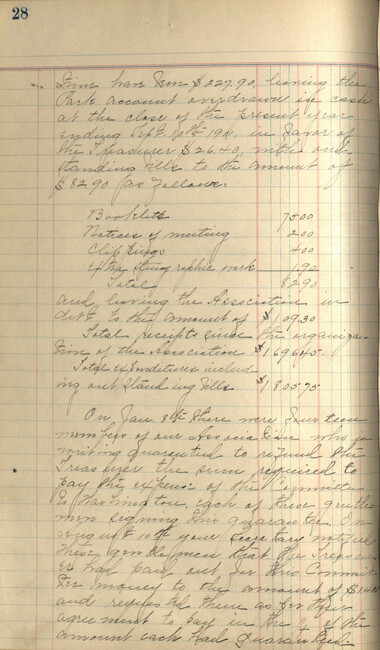 28
tion has been $227.90, leaving the
Park account overdrawn in cash
at the close of the present year
ending Sept. 10th 19 in favor of
the Treasurer $26.40, with out
standing bills to the amount of
$82.90 as follows.
Booklets 75 00
Notices of meeting 2 00
Clippings 4 00
Extra stenographic work 1 90
Total 82 90
and leaving the Association in
debt to the amount of $109.30
Total receipts since the organiza-
tion of the Association $1696.45
Total expenditures includ
ing out standing bills $1805.75
On Jan 8th there were fourteen
members of our Association who in
writing guaranteed to refund the
Treasurer the sum required to
pay the expense of the Committee
to Washington, each of these gentle
men signing this guarantee. On
August 10th your secretary notified
these gentlemen that the Treasur
er had paid out for this Commit
tee money to the amount of
and requested them as per their
agreement to pay in the of the
amount each had guaranteed.